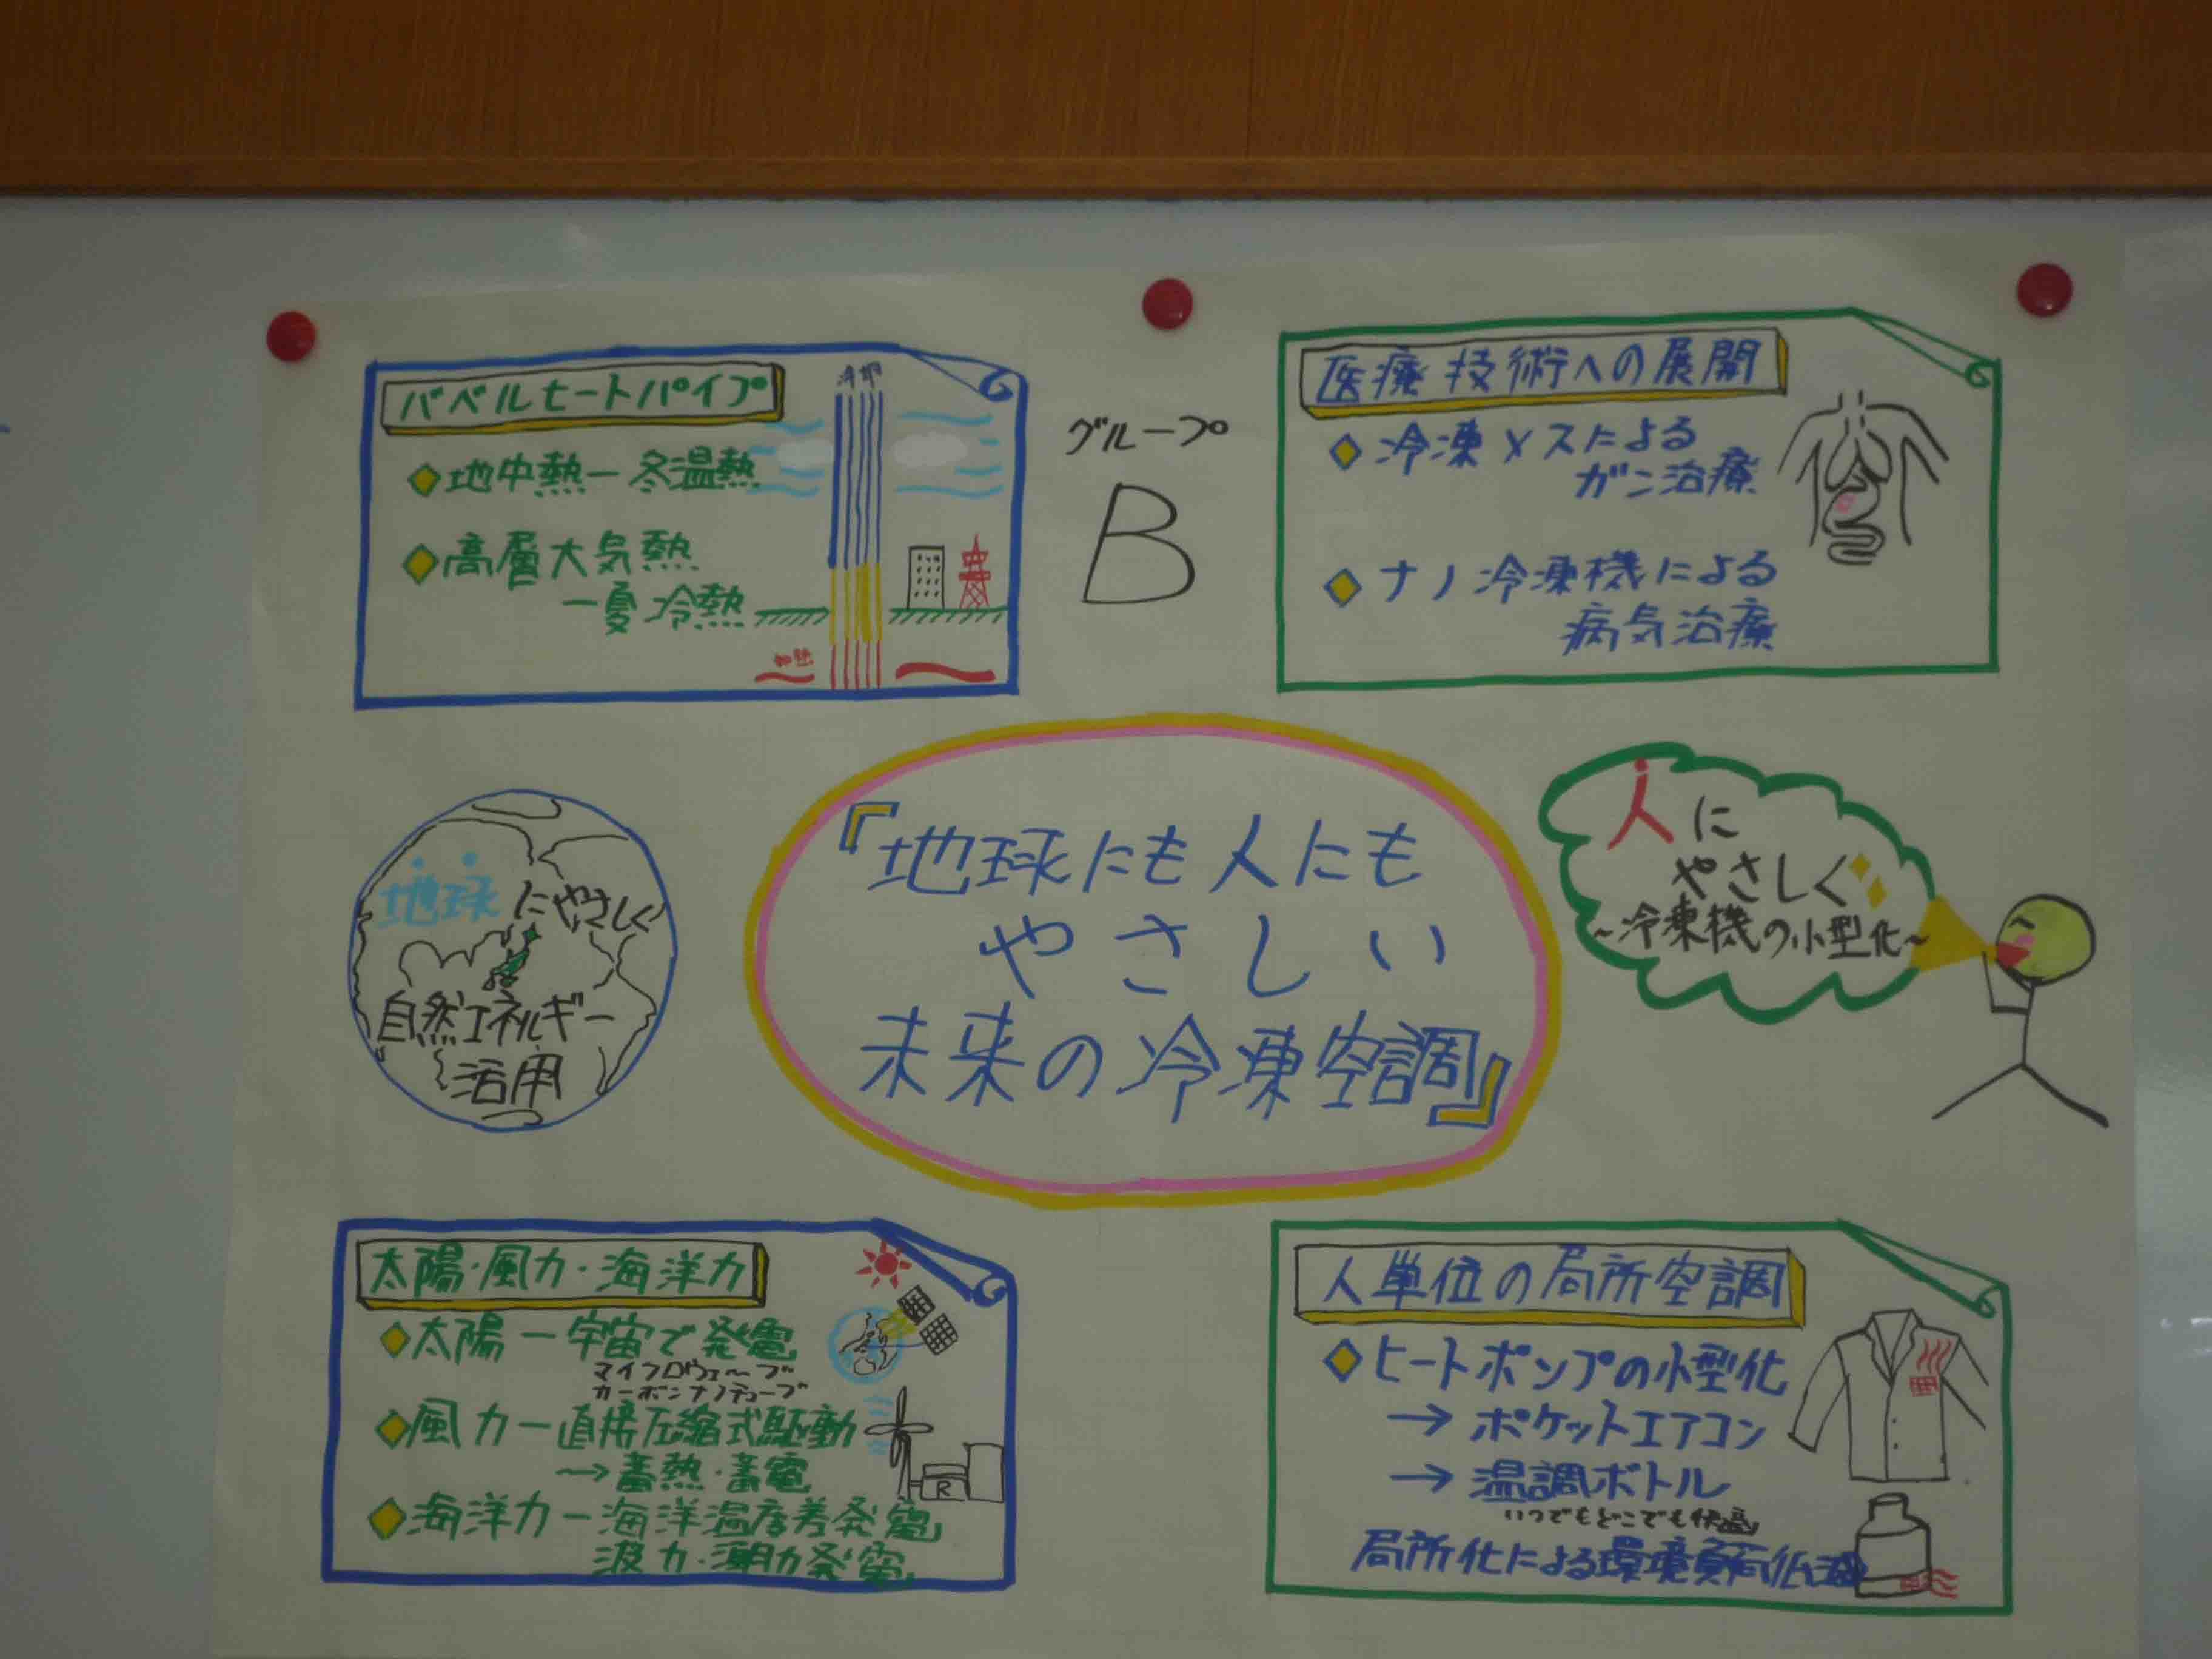 バベルヒートパイプ
◆地中熱ー冬温熱
◆高層大気熱
ー夏冷熱
グループ
B
医療技術への展開
◆冷凍メスによる
ガン治療
◆ナノ冷凍機による
病気治療
地球にやさしく
自然エネルギー
活用
『地球にも人にも
やさしい
未来の冷凍空調』
人に
やさしく
~冷凍機の小型化~
太陽・風力・海洋力
◆太陽ー宇宙で発電
マイクロウェーブ
カーボンナノチューブ
◆風力ー直接圧縮式駆動
→蓄熱・蓄電
R
◆海洋力ー海洋温度差発電
波力・潮力発電
人単位の局所空調
◆ヒートポンプの小型化
→ポケットエアコン
→温調ボトル
いつでもどこでも快適
局所化による環境負荷低減